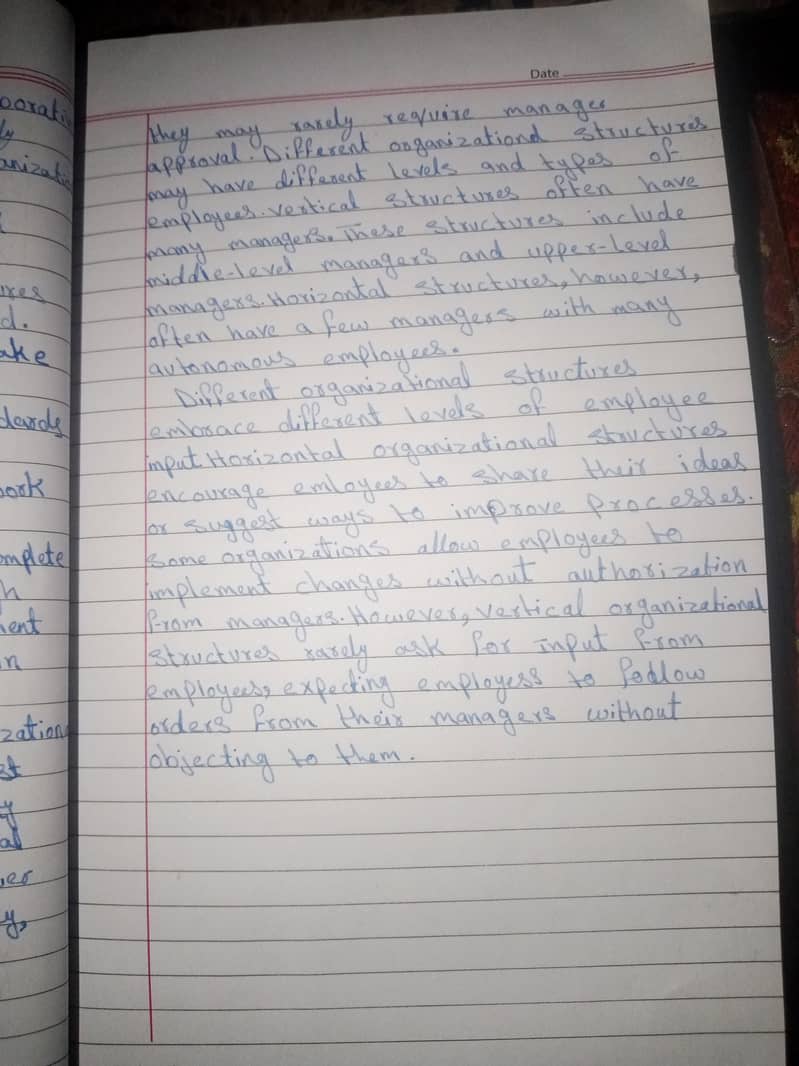 Date
they may rarely require manager
approval. Different organizational structures
may have different levels and types of
employees. Vertical structures often have
many managers. These structures include
middle-level managers and upper-level
managers. Horizontal structures, however,
often have a few managers with many
autonomous employees.
Different organizational structures
embrace different levels of employee
input Horizontal organizational structures
encourage emloyees to share their ideas
or suggest ways to improve processes.
Some organizations allow employees to
implement changes without authorization
from managers. However, vertical organizational
structures rarely ask for input from
employees, expecting employess to follow
orders from their managers without
objecting to them.
ake
dards
omplete
zation